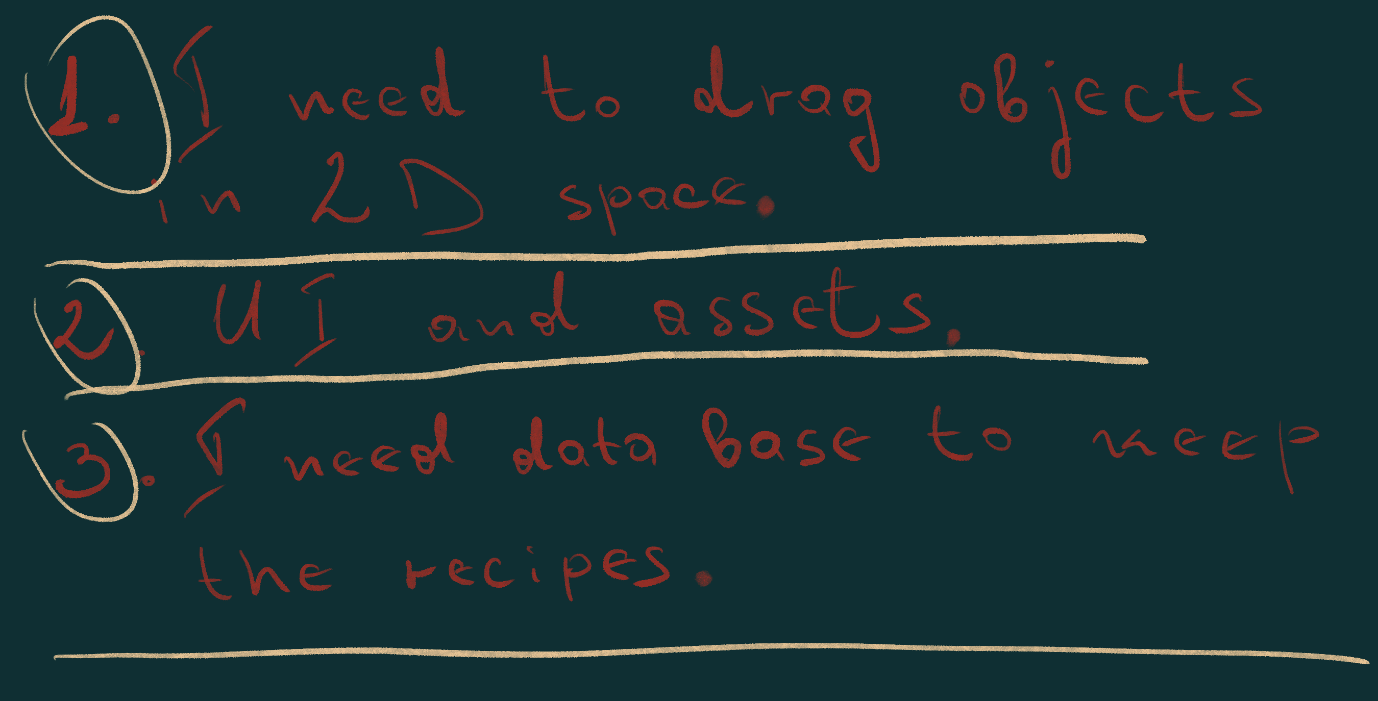 1. I need to drag objects
in 2D space.
2. UI and assets.
3. I need data base to keep
the recipes.